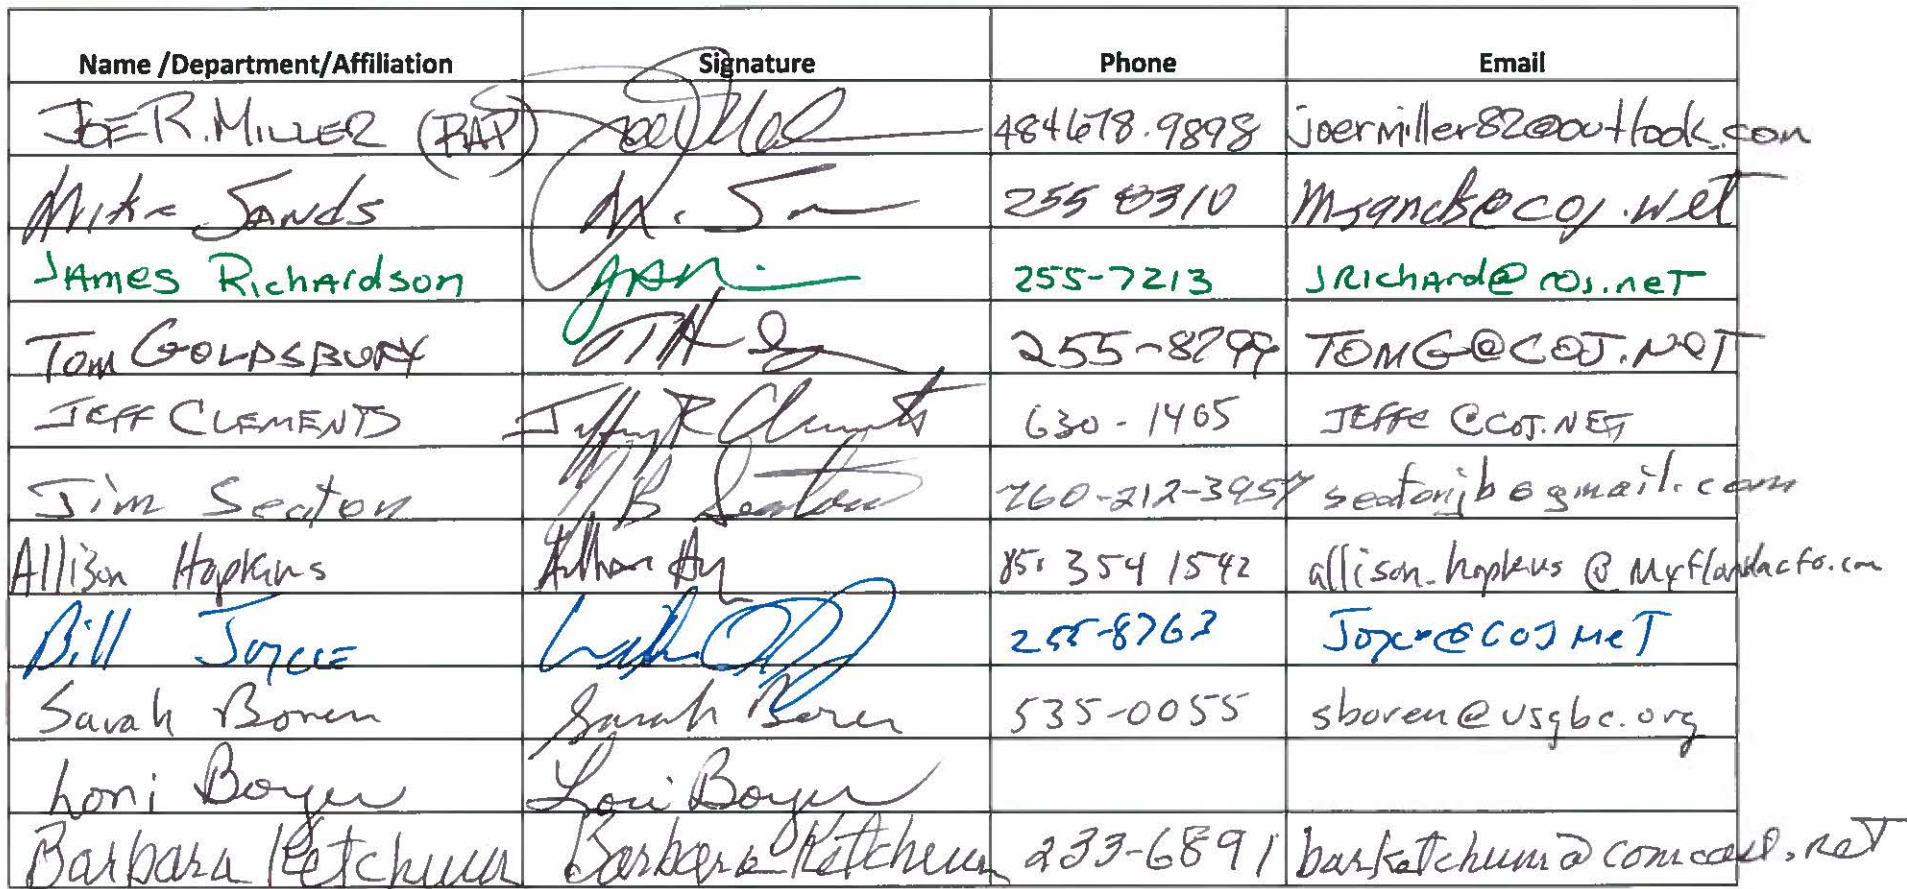 Name /Department/Affiliation Signature Phone Email
JOE R. MILLER (RAP) 484 678.9898 joermiller82@outlook.com
Mike SANDS M. S 255 8310 Msands@coj.net
JAmes RichArdson 255-7213 JRichArd@coj.neT
Tom GOLDSBURY 255-8299 TOMG@COJ.NeT
JEFF CLEMENTS Jeffrey R Clements 630-1405 JEFFC@COJ.NET
Jim Seaton J B Seaton 760-212-3957 seatonjb@gmail.com
Allison Hopkins 354 1542 allison.hopkins@
Bill JOYCE 255-8763 Joyce@COJ NeT
Sarah Boren Sarah Boren 535-0055 sboren@usgbc.org
Lori Boyer Lori Boyer
Barbara Ketchum Barbara Ketchum 233-6891 barketchum@comcast.net